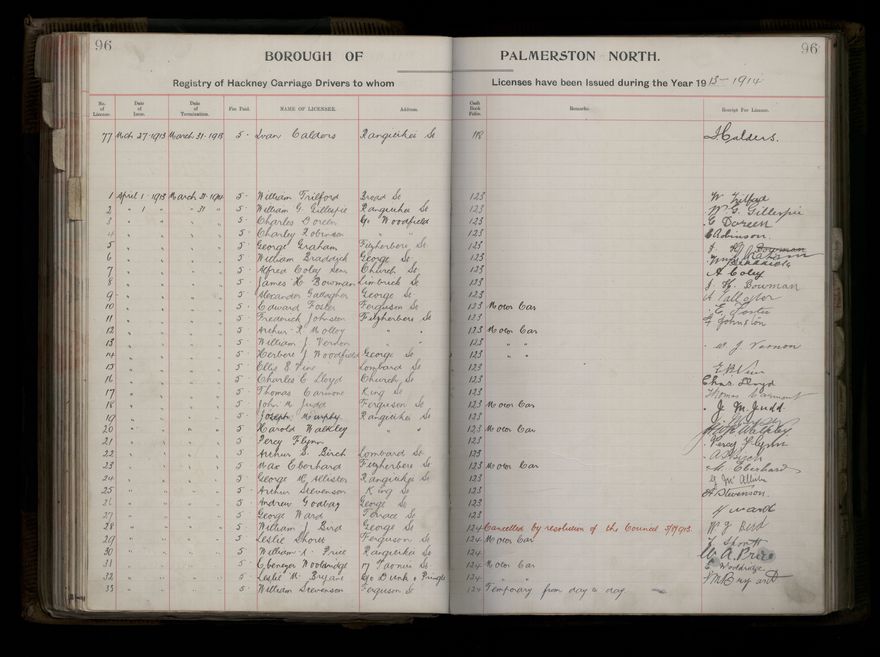 96 96
BOROUGH OF PALMERSTON NORTH.
Registry of Hackney Carriage Drivers to whom Licenses have been Issued during the Year 1913-1914
No. of License. Date of Issue. Date of Termination. Fee Paid. NAME OF LICENSEE. Address. Cash Book Folio. Remarks. Receipt For License.
77 Mch 27-1913 March 31-1913 5- Ivan Calders Rangitikei St 118
1 April 1-1913 March 31-1914 5- William Trilford Broad St 123
2 " 1 " " 31 " 5- William G. Gillespie Rangitikei St 123 W G. Gillespie
3 " " " " 5- Charles Doreen C/o Woodfield 123 C Doreen
4 " " " " 5- Charley Robinson " " 123 C Robinson.
5 " " " " 5- George Graham Fitzherbert St 123
6 " " " " 5- William Braddick George St 123
7 " " " " 5- Alfred Coley Senr Church St 123 A Coley
8 " " " " 5- James H Bowman Limerick St 123 J. H. Bowman
9 " " " " 5- Alexander Gallagher George St 123
10 " " " " 5- Edward Foster Ferguson St 123 Motor Car E. Foster
11 " " " " 5- Frederick Johnston Fitzherbert St 123 F Johnston
12 " " " " 5- Arthur P Molloy " " 123 Motor Car
13 " " " " 5- William J Vernon 123 " " W J Vernon
14 " " " " 5- Herbert J Woodfield George St 123 " "
15 " " " " 5- Ellis E Vine Lombard St 123
16 " " " " 5- Charles C Lloyd Church St 123 Chas Lloyd
17 " " " " 5- Thomas Carmont King St 123 Thomas Carmont
18 " " " " 5- John M Judd Ferguson St 123 Motor Car J. M. Judd
19 " " " " 5- Joseph Murphy Rangitikei St 123
20 " " " " 5- Harold Walkley " " 123 Motor Car
21 " " " " 5- Percy Flynn 123 Percy Flynn
22 " " " " 5- Arthur S. Birch Lombard St 123 A S Birch
23 " " " " 5- Max Eberhard Fitzherbert St 123 Motor Car M. Eberhard
24 " " " " 5- George McAllister Rangitikei St 123
25 " " " " 5- Arthur Stevenson King St 123 A Stevenson.
26 " " " " 5- Andrew Godbaz George St 123
27 " " " " 5- George Ward Terrace St 123
28 " " " " 5- William J Bird George St 124 Cancelled by resolution of the Council W J Bird
29 " " " " 5- Leslie Short Ferguson St 124 Motor Car
30 " " " " 5- William A. Price Rangitikei St 124 W. A. Price
31 " " " " 5- Ebenezer Wooldridge St 124 Motor Car E Wooldridge
32 " " " " 5- Leslie M. Bryant C/o Dunk & Pringle 124 " " L M Bryant
33 " " " " 5- William Stevenson Ferguson St 124 Temporary from day to day